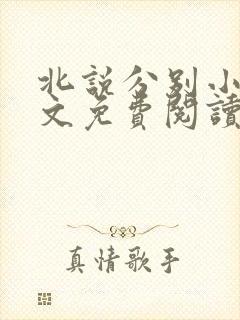 北說分别小
文免費閱讀
真情歌手